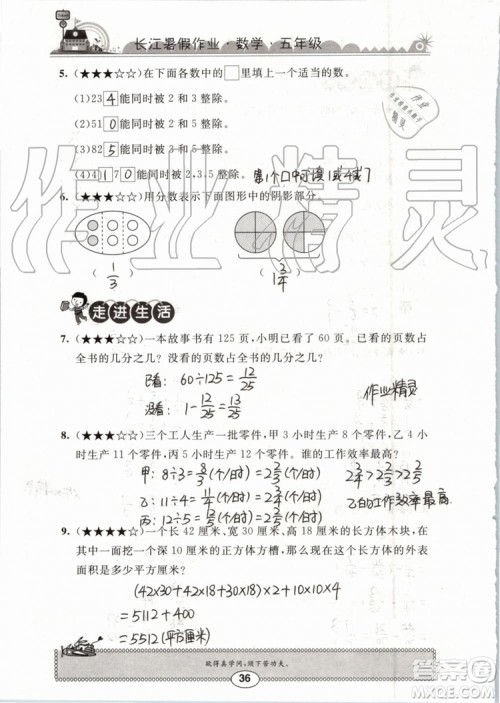 长江暑假作业·数学·五年级
5. (★★★☆☆)在下面各数中的□里填上一个适当的数。
(1)23 4 能同时被 2 和 3 整除。
(2)51 0 能同时被 2 和 5 整除。
(3)82 5 能同时被 3 和 5 整除。
(4)4 1 7 0 能同时被 2、3、5 整除。 第1个口中可填1或4或7
6. (★★★☆☆)用分数表示下面图形中的阴影部分。
( 1/3 ) 1 3/4
走进生活
7. (★★★☆☆)一本故事书有 125 页,小明已看了 60 页。已看的页数占
全书的几分之几?没看的页数占全书的几分之几?
已看: 60÷125=12/25
没看: 1-12/25=13/25
作业精灵
8. (★★★★☆)三个工人生产一批零件,甲 3 小时生产 8 个零件,乙 4 小时
生产 11 个零件,丙 5 小时生产 12 个零件。谁的工作效率最高?
甲: 8÷3=8/3(个/时)=2 2/3(个/时) 2 3/4>2 2/3>2 2/5
乙: 11÷4=11/4(个/时)=2 3/4(个/时) 乙的工作效率最高.
丙: 12÷5=12/5(个/时)=2 2/5(个/时)
9. (★★★★☆)一个长 42 厘米、宽 30 厘米、高 18 厘米的长方体木块,在
其中一面挖一个深 10 厘米的正方体方槽,那么现在这个长方体的外表
面积是多少平方厘米?
(42×30+42×18+30×18)×2+10×10×4
=5112+400
=5512(平方厘米)
欲得真学问,须下苦功夫。
36
作业精灵
答案圈
MXQE.COM